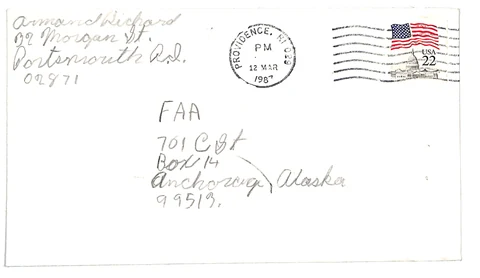 Armand Richard
92 Morgan St.
Portsmouth R.I.
02871
PROVIDENCE, RI 029
PM
12 MAR
1987
USA
22
FAA
701 C St
Box 14
Anchorage, Alaska
99513.